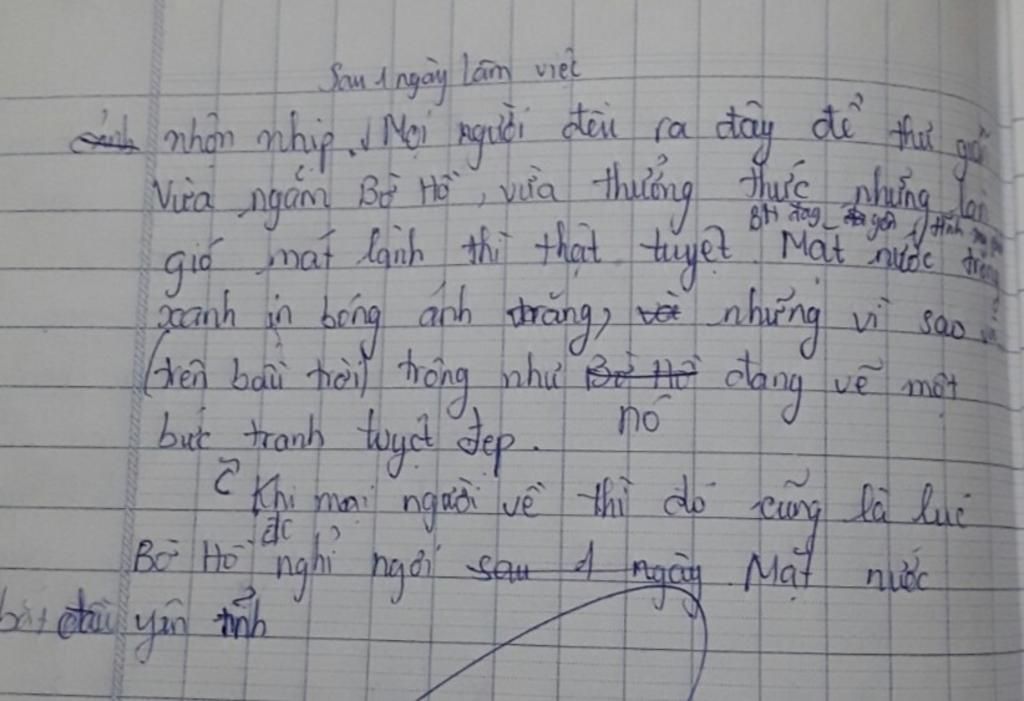 Sau 1 ngày làm việc
nhộn nhịp. Mọi người đều ra đây để thư giãn
Vừa ngắm Bờ Hồ, vừa thưởng thức những làn
BH đang yên tĩnh
gió mát lành thì thật tuyệt. Mặt nước trong
xanh in bóng ánh trăng, những vì sao
(trên bầu trời) trông như Bờ Hồ đang vẽ một
nó
bức tranh tuyệt đẹp.
Khi mọi người về thì đó cũng là lúc
đc
Bờ Hồ nghỉ ngơi sau 1 ngày. Mặt nước
bắt đầu yên tĩnh